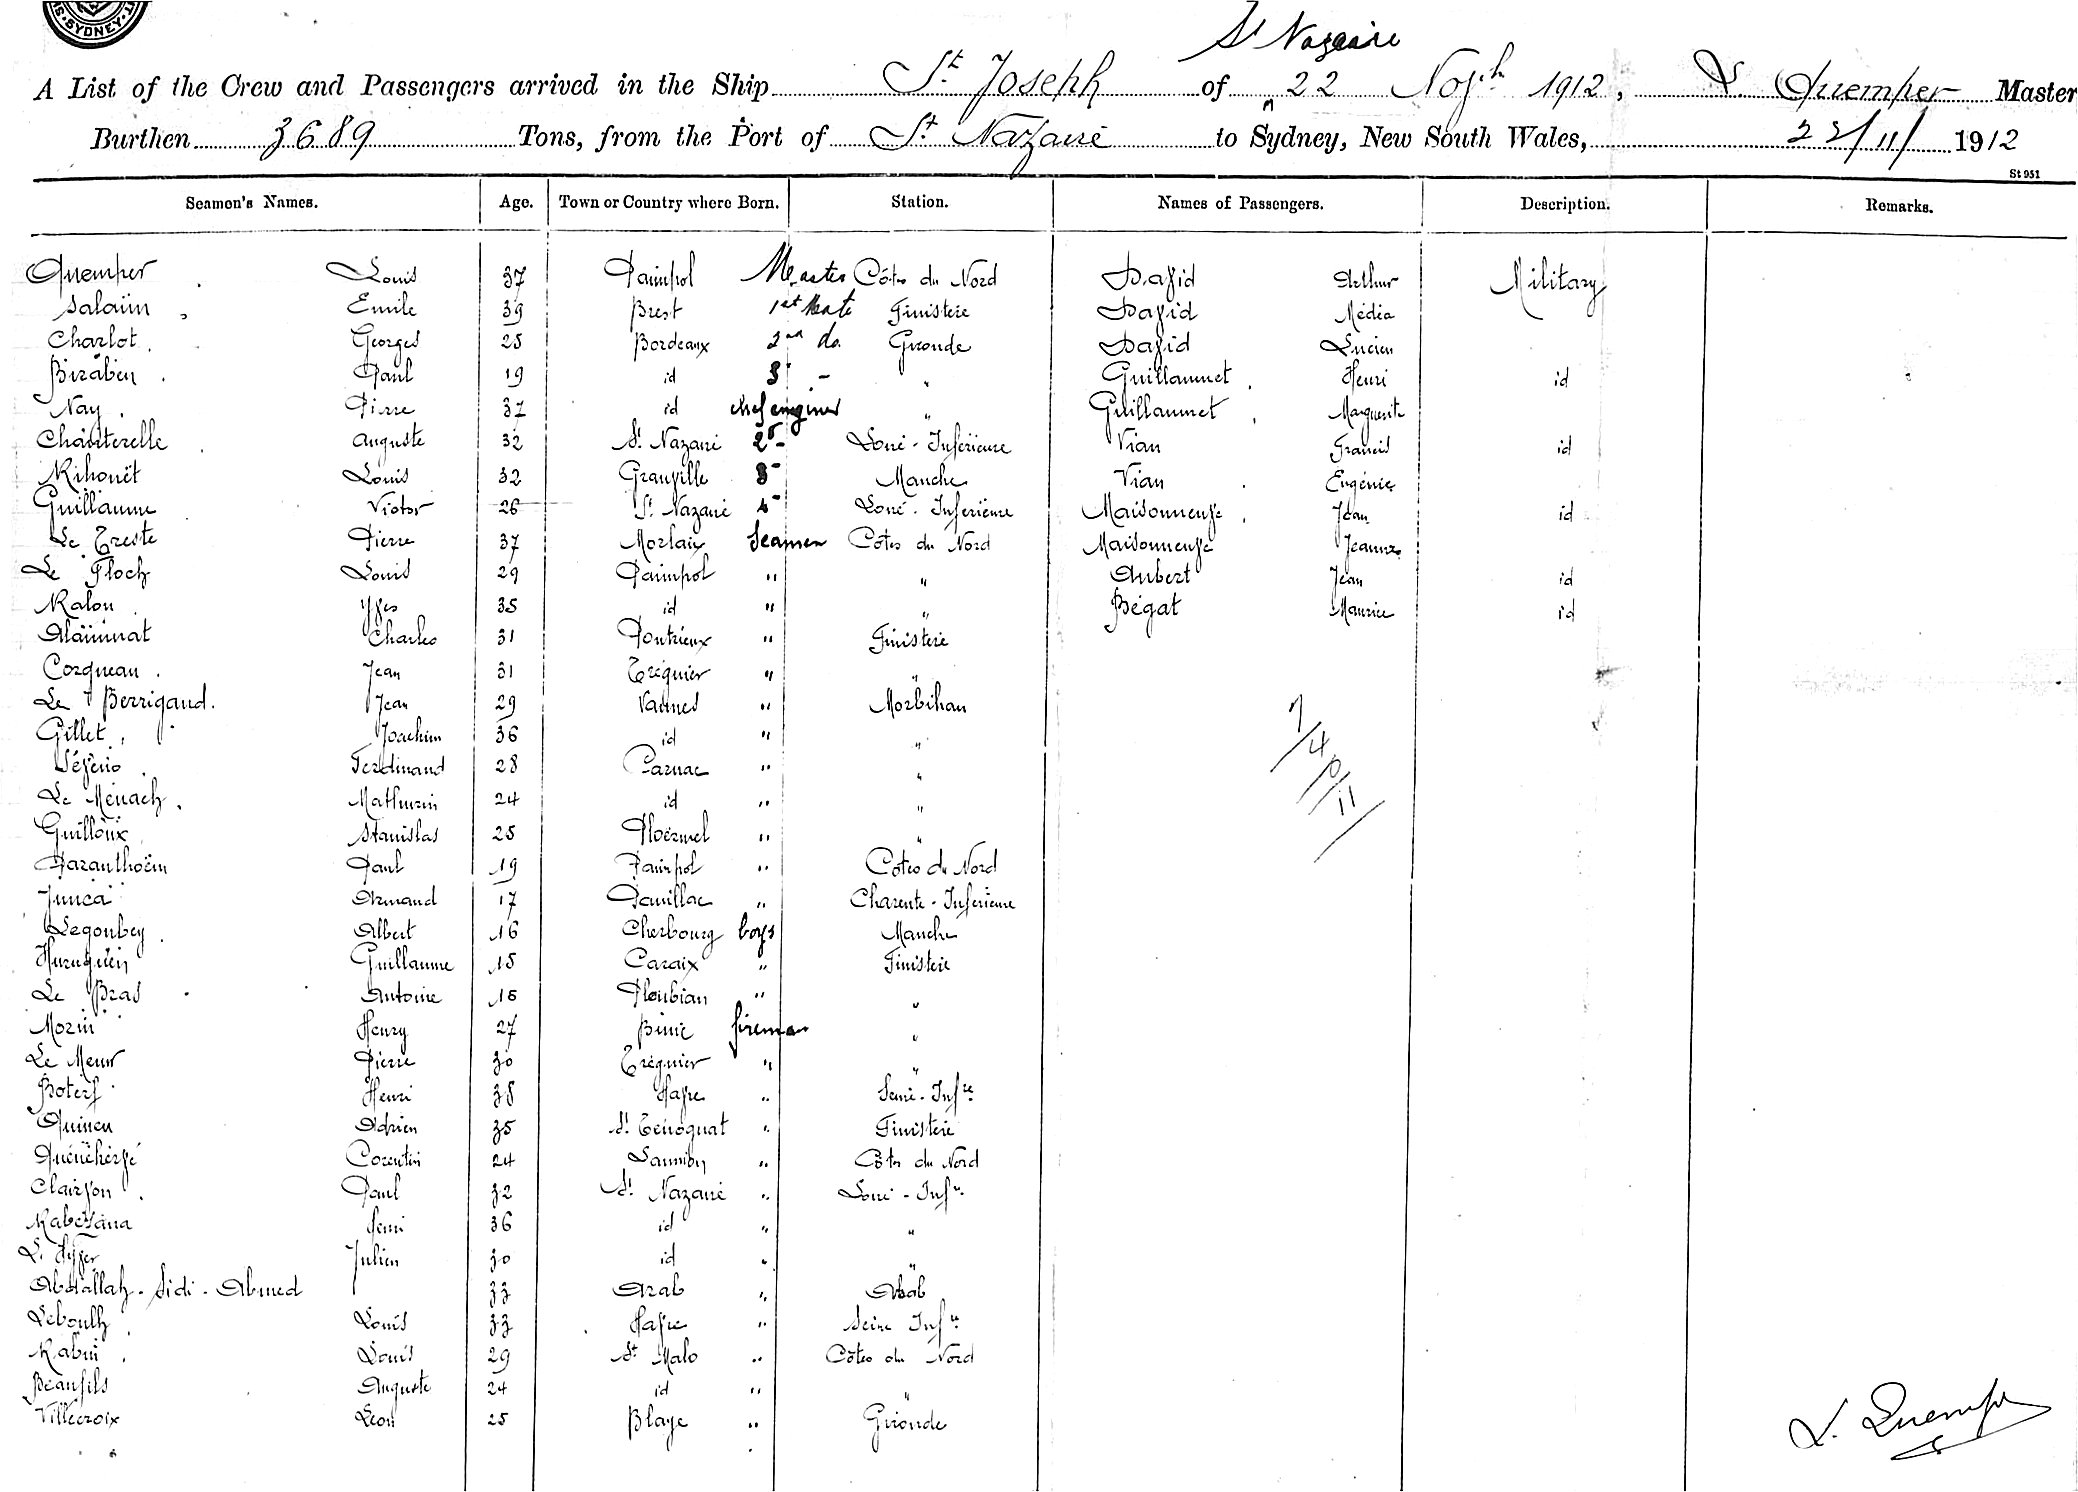 SYDNEY
St Nazaire
A List of the Crew and Passengers arrived in the Ship St. Joseph of 22 1912, L. Quemper Master
Burthen 3689 Tons, from the Port of St. Nazaire to Sydney, New South Wales, 22/11/1912
St 951
Seamen's Names. Age. Town or Country where Born. Station. Names of Passengers. Description. Remarks.
Quemper Louis 37 Paimpol Master Côtes du Nord David Arthur Military
Salaün Emile 39 Brest 1st Mate Finistère David Médéa
Charlot Georges 25 Bordeaux 2nd do. Gironde David Lucien
Biraben Paul 19 id 3 - " Guillaumet Henri id
Nay Pierre 37 id chef engineer " Guillaumet Marguerite
Chanterelle Auguste 32 St Nazaire 2d - Loire-Inférieure Vian Francis id
Rihouët Louis 32 Granville 3 - Manche Vian Eugénie
Guillaume Victor 26 St Nazaire 4 - Loire-Inférieure Maisonneuve Jean id
Le Treste Pierre 37 Morlaix Seamen Côtes du Nord Maisonneuve Jeanne
Le Floch Louis 29 Paimpol " " Aubert Jean id
Kalon Yves 35 id " " Bégat Maurice id
Alainmat Charles 31 Pontrieux " Finistère
Corqueau Jean 31 Tréguier " "
Le Berrigaud. Jean 29 Vannes " Morbihan
Gillet Joachim 36 id " "
Séveno Ferdinand 28 Carnac " "
Le Ménach Mathurin 24 id " "
Guilloux Stanislas 25 Ploërmel " "
Daranthoën Paul 19 Paimpol " Côtes du Nord
Junca Armand 17 Pauillac " Charente-Inférieure
Legoubey Albert 16 Cherbourg boys Manche
Guillaume 15 Caraix " Finistère
Le Bras Antoine 16 Ploubian " "
Morin Henry 27 Binic fireman "
Le Meur Pierre 30 Tréguier " "
Boterf Henri 38 Havre " Seine-Infre
Quinen Adrien 35 St Tenoquat " Finistère
Quénéhervé Corentin 24 Lannion " Côtes du Nord
Clairjon Paul 32 St Nazaire " Loire-Infre
Rabezana 36 id " "
Julien 30 id " "
Abdallah-Sidi-Ahmed 33 Arab " Arab
Leboulh Louis 33 Havre " Seine Infre
Rabin Louis 29 St Malo " Côtes du Nord
Beaufils Auguste 24 id " "
Villecroix Léon 25 Blaye " Gironde
L. Quemper